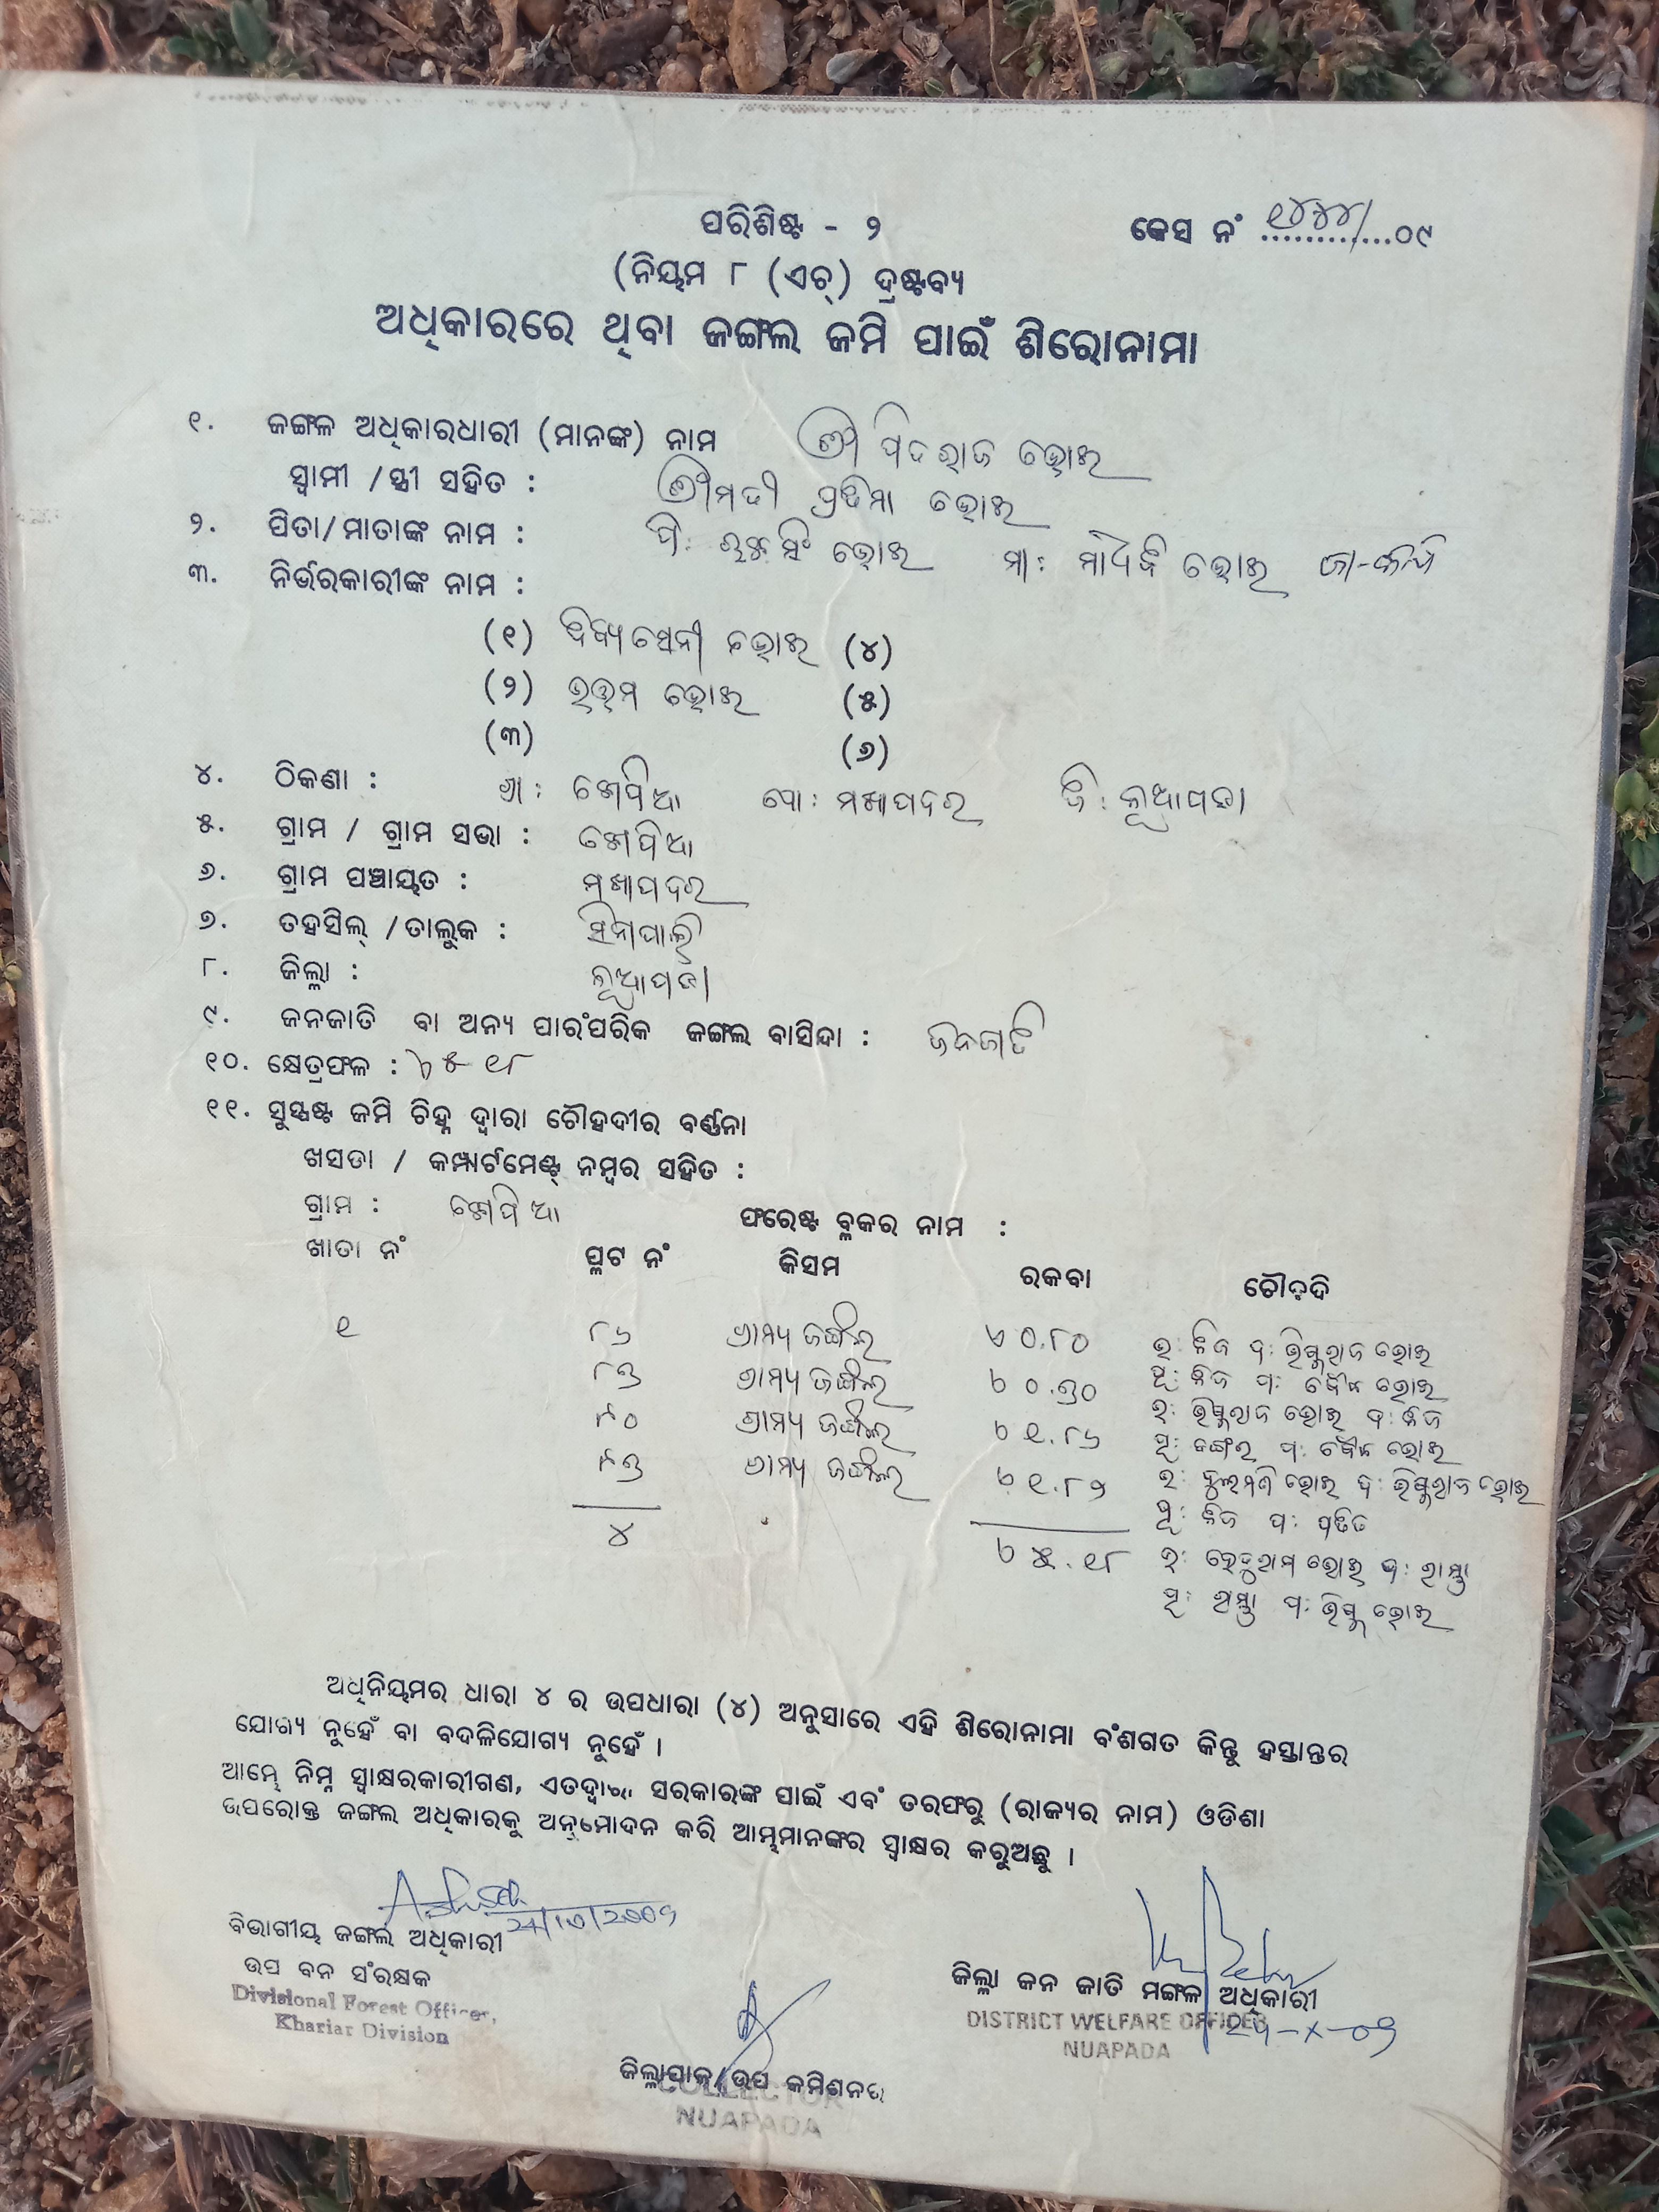 ପରିଶିଷ୍ଟ - ୨
କେସ ନଂ ୧୪୪୪/୦୯
(ନିୟମ ୮ (ଏଚ୍) ଦ୍ରଷ୍ଟବ୍ୟ
ଅଧିକାରରେ ଥିବା ଜଙ୍ଗଲ ଜମି ପାଇଁ ଶିରୋନାମା
୧. ଜଙ୍ଗଳ ଅଧିକାରଧାରୀ (ମାନଙ୍କ) ନାମ ଶ୍ରୀ ପିଦରାଜ ଭୋଇ
ସ୍ୱାମୀ /ସ୍ତ୍ରୀ ସହିତ : ଶ୍ରୀମତୀ ପ୍ରତିମା ଭୋଇ
୨. ପିତା/ମାତାଙ୍କ ନାମ : ପି: ଭୋଇ ମା: ଭୋଇ
୩. ନିର୍ଭରକାରୀଙ୍କ ନାମ :
(୧) ଭୋଇ (୪)
(୨) ଉତ୍ତମ ଭୋଇ (୫)
(୩) (୬)
୪. ଠିକଣା : ଗ୍ରା: ପୋ: ମଖାପଦର ଜି: ନୂଆପଡା
୫. ଗ୍ରାମ / ଗ୍ରାମ ସଭା :
୬. ଗ୍ରାମ ପଞ୍ଚାୟତ : ମଖାପଦର
୭. ତହସିଲ୍ /ତାଲୁକ : ସିନାପାଲି
୮. ଜିଲ୍ଲା : ନୂଆପଡା
୯. ଜନଜାତି ବା ଅନ୍ୟ ପାରଂପରିକ ଜଙ୍ଗଲ ବାସିନ୍ଦା : ଜନଜାତି
୧୦. କ୍ଷେତ୍ରଫଳ : ୫ ୧୮
୧୧. ସୁସ୍ପଷ୍ଟ ଜମି ଚିହ୍ନ ଦ୍ୱାରା ଚୌହଦୀର ବର୍ଣ୍ଣନା
ଖସଡା / କମ୍ପାର୍ଟମେଣ୍ଟ୍ ନମ୍ବର ସହିତ :
ଗ୍ରାମ : ଫରେଷ୍ଟ ବ୍ଲକର ନାମ :
ଖାତା ନଂ ପ୍ଲଟ ନଂ କିସମ ରକବା ଚୌହଦି
୧ ୮୬ ଗ୍ରାମ୍ୟ ଜଙ୍ଗଲ ୦.୮୦ ଉ: ନିଜ ଦ: ଭିଷ୍ମରାଜ ଭୋଇ
୮୭ ଗ୍ରାମ୍ୟ ଜଙ୍ଗଲ ୦.୭୦ ପୂ: ନିଜ ପ: ଭୋଇ
୯୦ ଗ୍ରାମ୍ୟ ଜଙ୍ଗଲ ୧.୮୬ ଉ: ଭିଷ୍ମରାଜ ଭୋଇ ଦ: ନିଜ
ପୂ: ଜଙ୍ଗଲ ପ: ଭୋଇ
୯୭ ଗ୍ରାମ୍ୟ ଜଙ୍ଗଲ ୧.୮୨ ଉ: ଭୋଇ ଦ: ଭିଷ୍ମରାଜ ଭୋଇ
ପୂ: ନିଜ ପ: ପତିତ
୪ ୫.୧୮ ଉ: ଭୋଇ ଦ: ରାସ୍ତା
ପୂ: ରାସ୍ତା ପ: ଭିଷ୍ମ ଭୋଇ
ଅଧିନିୟମର ଧାରା ୪ ର ଉପଧାରା (୪) ଅନୁସାରେ ଏହି ଶିରୋନାମା ବଂଶଗତ କିନ୍ତୁ ହସ୍ତାନ୍ତର
ଯୋଗ୍ୟ ନୁହେଁ ବା ବଦଳିଯୋଗ୍ୟ ନୁହେଁ ।
ଆମ୍ଭେ ନିମ୍ନ ସ୍ୱାକ୍ଷରକାରୀଗଣ, ଏତଦ୍ୱାରା ସରକାରଙ୍କ ପାଇଁ ଏବଂ ତରଫରୁ (ରାଜ୍ୟର ନାମ) ଓଡିଶା
ଉପରୋକ୍ତ ଜଙ୍ଗଲ ଅଧିକାରକୁ ଅନୁମୋଦନ କରି ଆମ୍ଭମାନଙ୍କର ସ୍ୱାକ୍ଷର କରୁଅଛୁ ।
24/10/2009
ବିଭାଗୀୟ ଜଙ୍ଗଲ ଅଧିକାରୀ
ଉପ ବନ ସଂରକ୍ଷକ
Divisional Forest Officer,
Khariar Division
ଜିଲ୍ଲା ଜନ ଜାତି ମଙ୍ଗଳ ଅଧିକାରୀ
DISTRICT WELFARE OFFICER
NUAPADA
ଜିଲ୍ଲାପାଳ/ଉପ କମିଶନର
COLLECTOR
NUAPADA